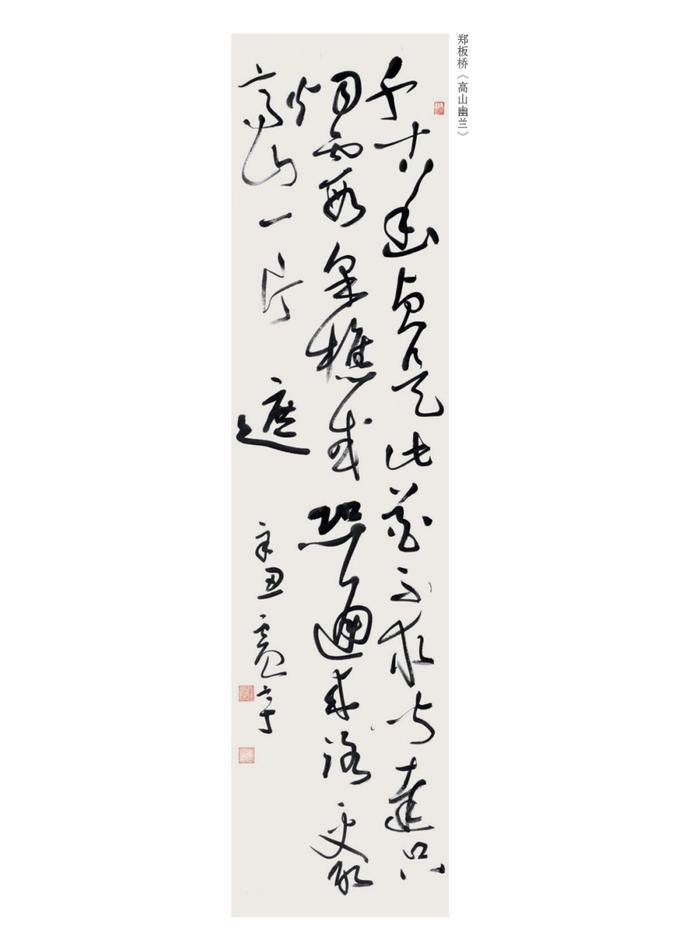 郑板桥《高山幽兰》
千古幽貞是此花不求聞達只
烟霞采樵或恐通來路更取
高山一片遮
辛丑